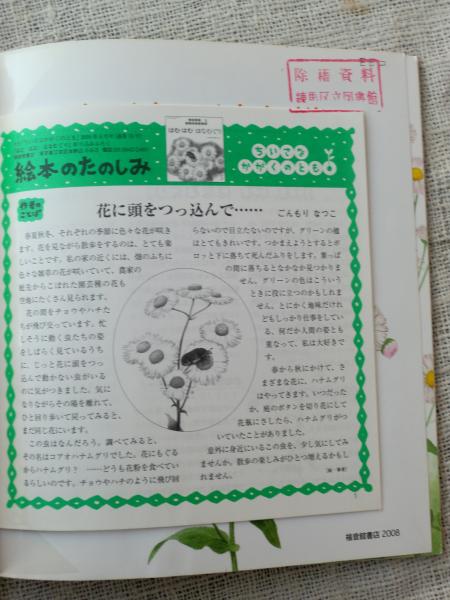 除籍資料
練馬区立図書館
はむはむ はなむぐり
絵本のたのしみ
ちいさな
かがくのとも
作者の
ことば
花に頭をつっ込んで……
ごんもり なつこ
春夏秋冬、それぞれの季節に色々な花が咲き
ます。花を見ながら散歩をするのは、とても楽
しいことです。私の家の近くには、畑のふちに
色々な雑草の花が咲いていて、農家の
庭先からこぼれた園芸種の花も
空地にたくさん見られます。
花の間をチョウやハチた
ちが飛び交っています。忙
しそうに動く虫たちの姿
をしばらく見ているうち
に、じっと花に頭をつっ
込んで動かない虫がいる
のに気がつきました。気に
なりながらその場を離れて、
ひと回り歩いて戻ってみると、
まだ同じ花にいます。
この虫はなんだろう。調べてみると、
その名はコアオハナムグリでした。花にもぐる
からハナムグリ？ ……どうも花粉を食べてい
るらしいのです。チョウやハチのように飛び回
らないので目立たないのですが、グリーンの翅
はとてもきれいです。つかまえようとするとポ
ロッと下に落ちて死んだふりをします。葉っぱ
の間に落ちるとなかなか見つかりま
せん。グリーンの色はこういう
ときに役に立つのかもしれま
せん。とにかく地味だけれ
どもしっかり仕事をしてい
る、何だか人間の姿とも
重なって、私は大好きで
す。
春から秋にかけて、さ
まざまな花に、ハナムグリ
はやってきます。いつだった
か、庭のボタンを切り花にして
花瓶にさしたら、ハナムグリがつ
いていたことがありました。
意外に身近にいるこの虫を、少し気にしてみ
ませんか。散歩の楽しみがひとつ増えるかもし
れません。
1
福音館書店 2008